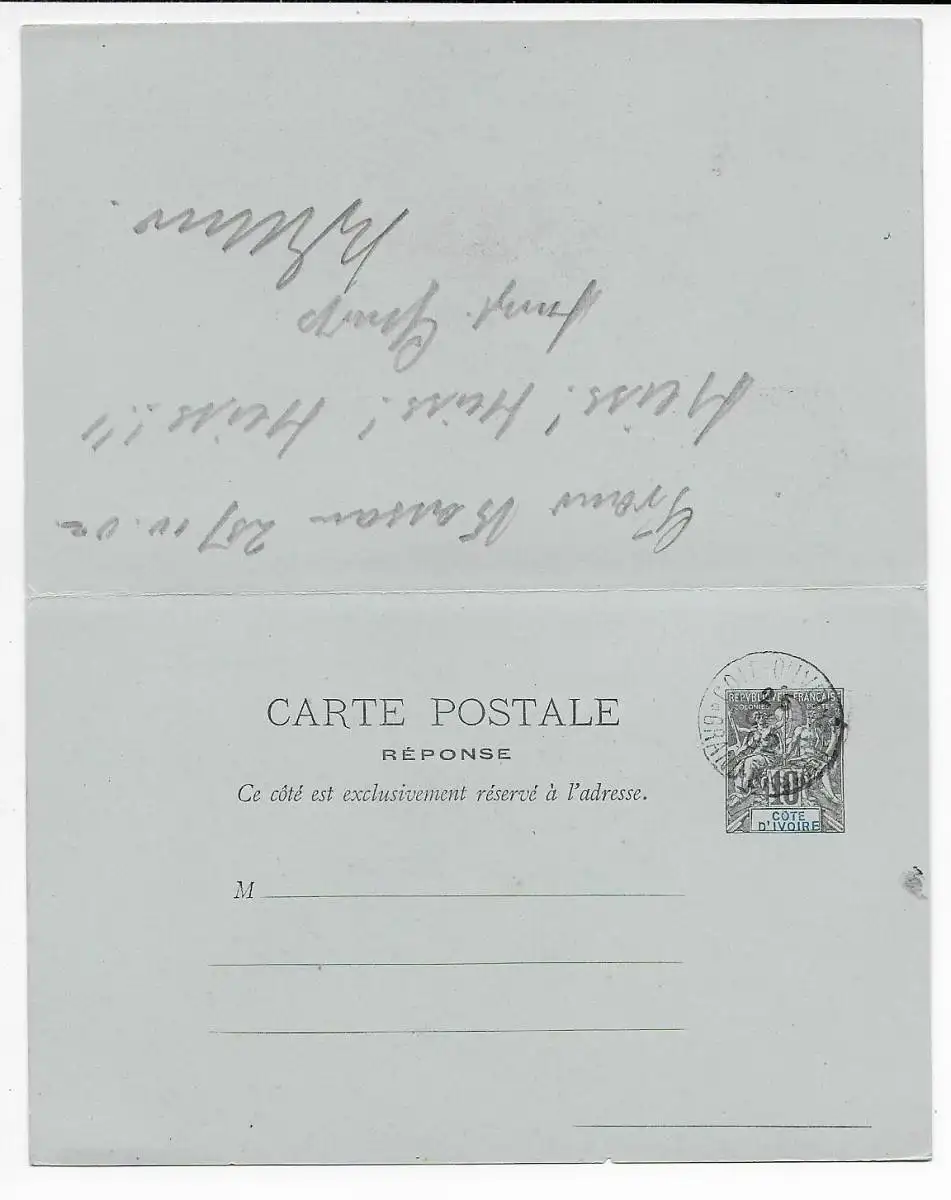 Grand Bassam 25/IV.02
Heiss! Heiss! Heiss!!!
CARTE POSTALE
RÉPONSE
Ce côté est exclusivement réservé à l'adresse.
M
CÔTE D'IVOIRE
RÉPUBLIQUE FRANÇAISE
COLONIES POSTES
10
CÔTE
D'IVOIRE